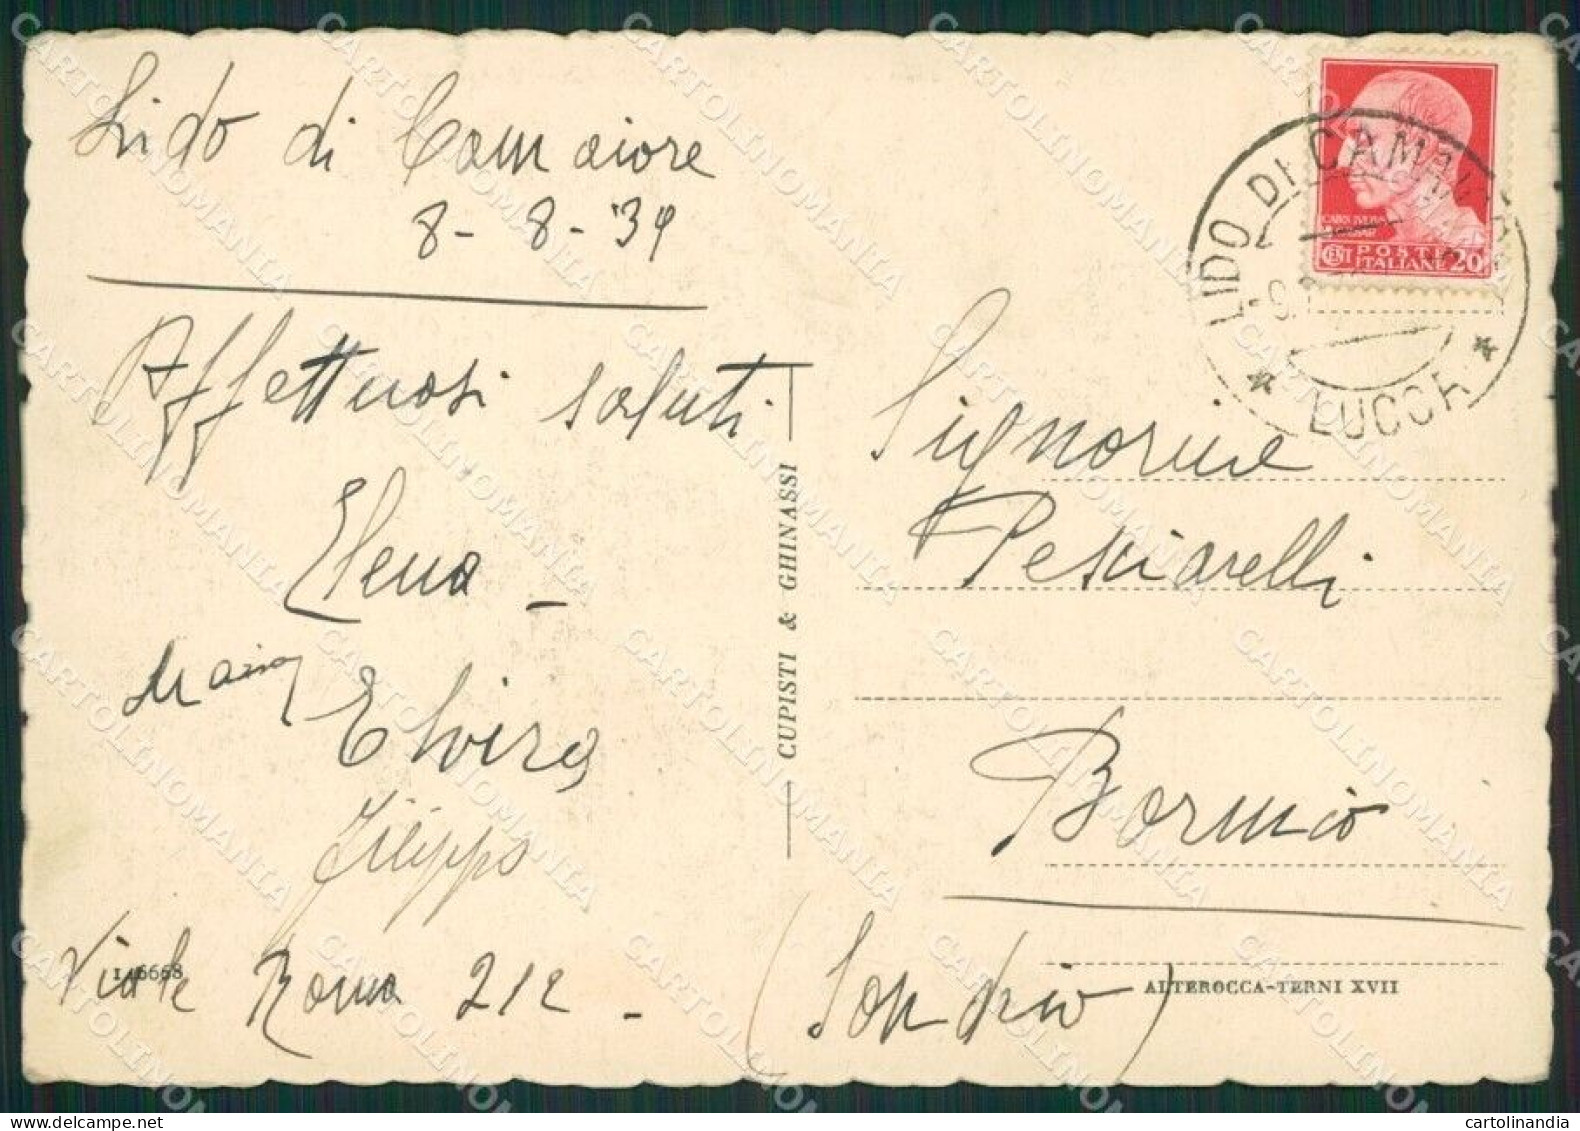 Lido di Camaiore
8-8-'39
Affettuosi saluti
Elena -
Elvira
Filippo
Viale Roma 212 -
146668
CUPISTI & GHINASSI
LIDO DI CAMAIORE
* LUCCA *
POSTE
CENT ITALIANE 20
Signorine
Pesciarelli
Bormio
(Sondrio)
ALTEROCCA-TERNI XVII
CARTOLINOMANIA
cartolinandia